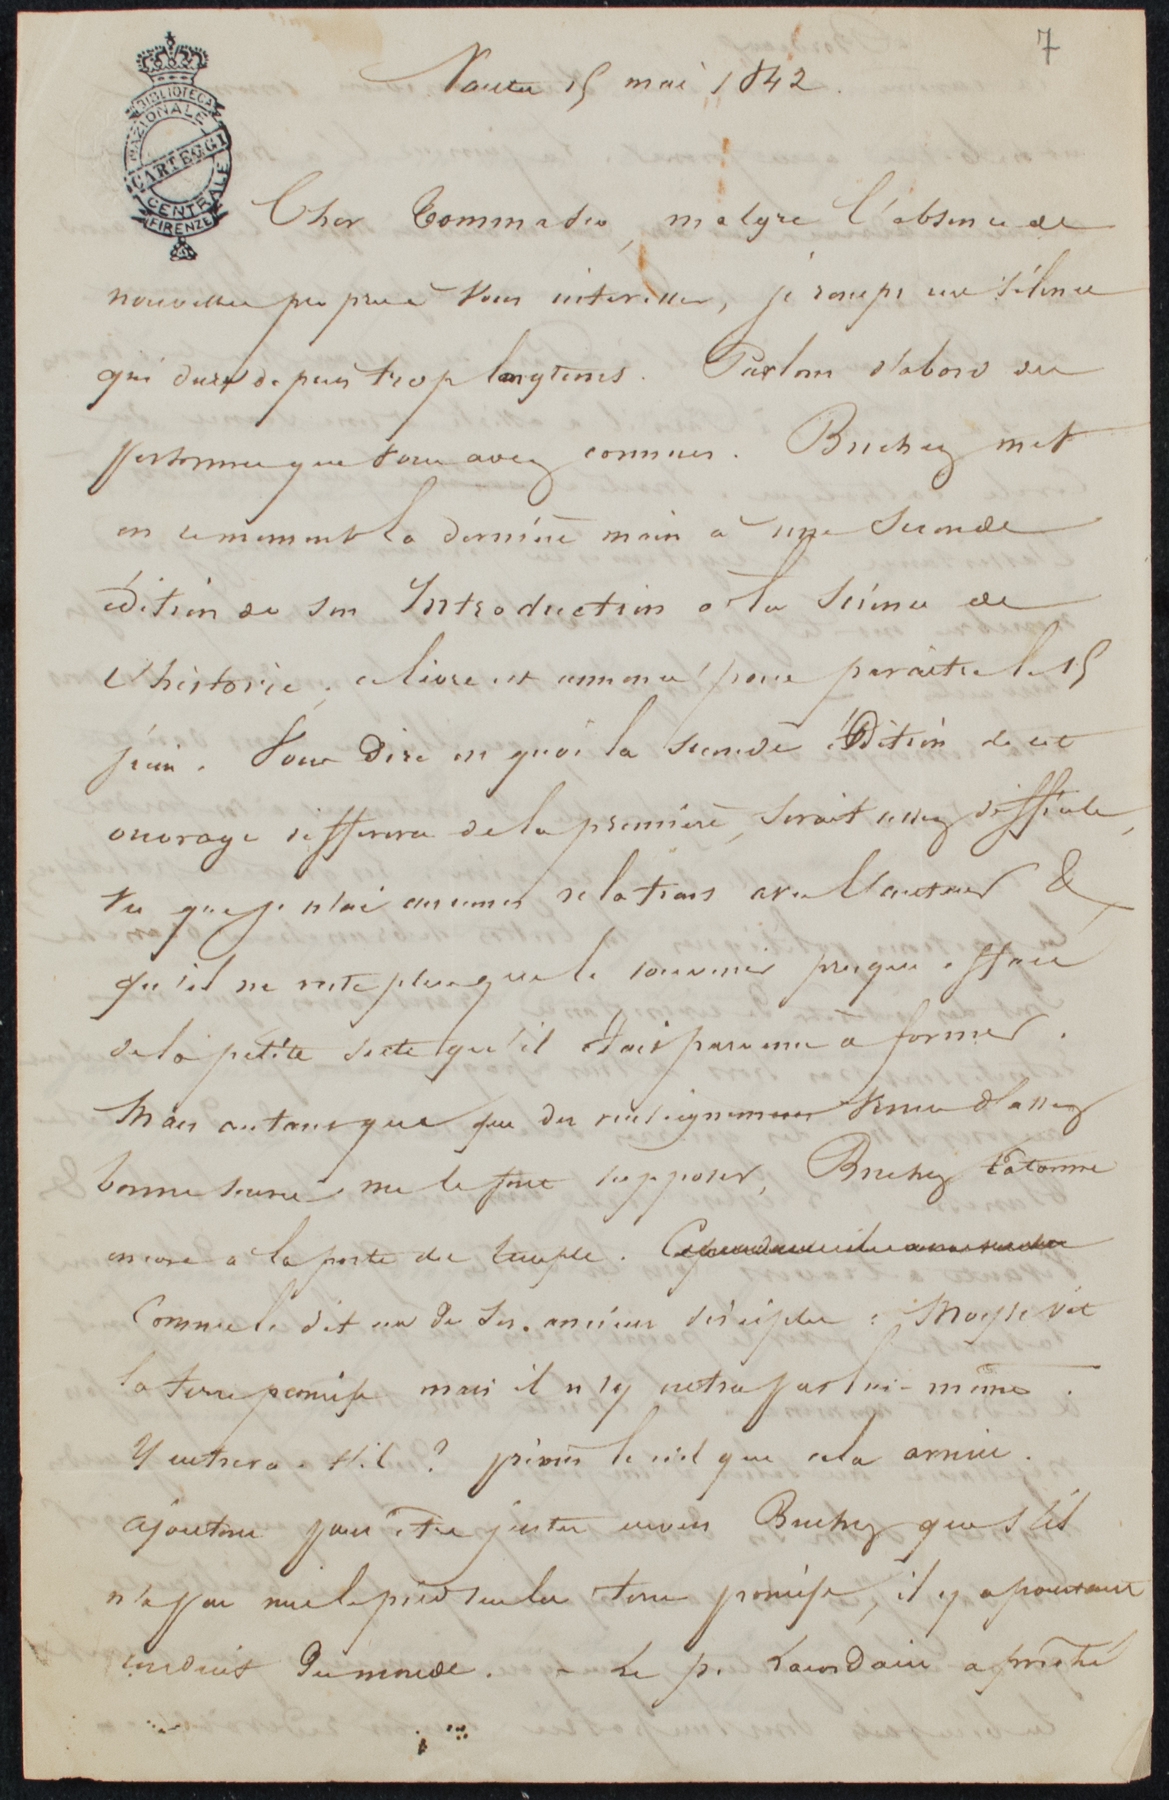 7
Nantes 15 mai 1842.
BIBLIOTECA
NAZIONALE
CARTEGGI
CENTRALE
FIRENZE
Cher Tommaseo, malgré l'absence de
nouvelles propres à vous intéresser, je romps un silence
qui dure depuis trop longtems. Parlons d'abord des
personnes que vous avez connues. Buchez met
en ce moment la dernière main à une seconde
édition de son Introduction à la Science de
l'histoire, ce livre est annoncé pour paraître le 15
juin. Vous dire en quoi la seconde édition de cet
ouvrage différera de la première, serait assez difficile,
vu que je n'ai aucunes relations avec l'auteur &
qu'il ne reste plus que le souvenir presque effacé
de la petite secte qu'il était parvenu à former.
Mais autant que des renseignemens venus d'assez
bonne source me le font supposer, Buchez tatonne
encore à la porte du temple.
Comme le dit un de ses anciens disciples : Moyse vit
la terre promise mais il n'y entra pas lui-même.
Y entrera-t-il ? prions le ciel que cela arrive.
ajoutons pour être justes envers Buchez que s'il
n'a pas mis le pied sur la terre promise, il y a pourtant
conduit du monde. - Le p. Lacordaire a prêché